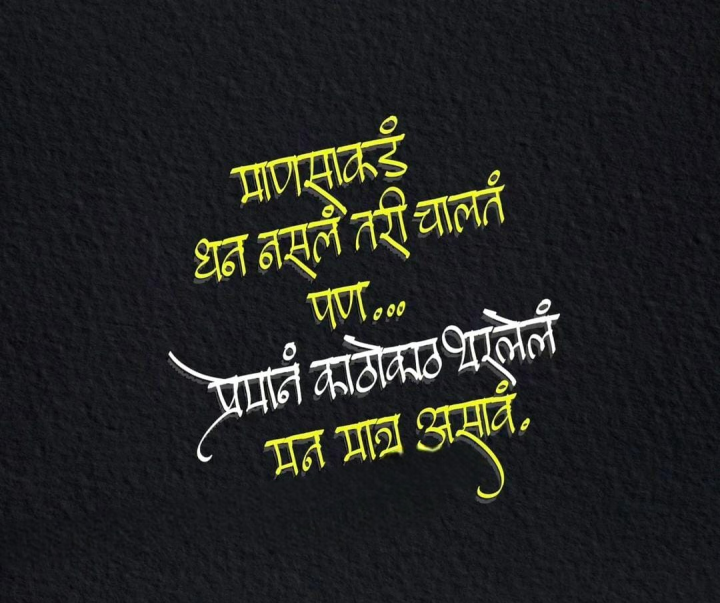 माणसाकडं
धन नसलं तरी चालतं
पण...
प्रेमानं काठोकाठ भरलेलं
मन मात्र असावं.